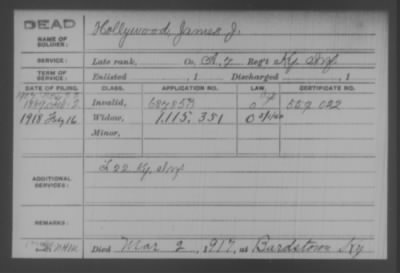 DEAD
NAME OF SOLDIER: Hollywood, James J.
SERVICE: Late rank, Co. A, 7 Reg't Ky Inf
TERM OF SERVICE: Enlisted , 1 Discharged , 1
DATE OF FILING. CLASS. APPLICATION NO. LAW. CERTIFICATE NO.
Invalid, 559022
1918 July 16 Widow, 1.115.381
Minor,
ADDITIONAL SERVICES: F 22 Ky. Inf
REMARKS:
Died Mar 2, 1917, at Bardstown Ky